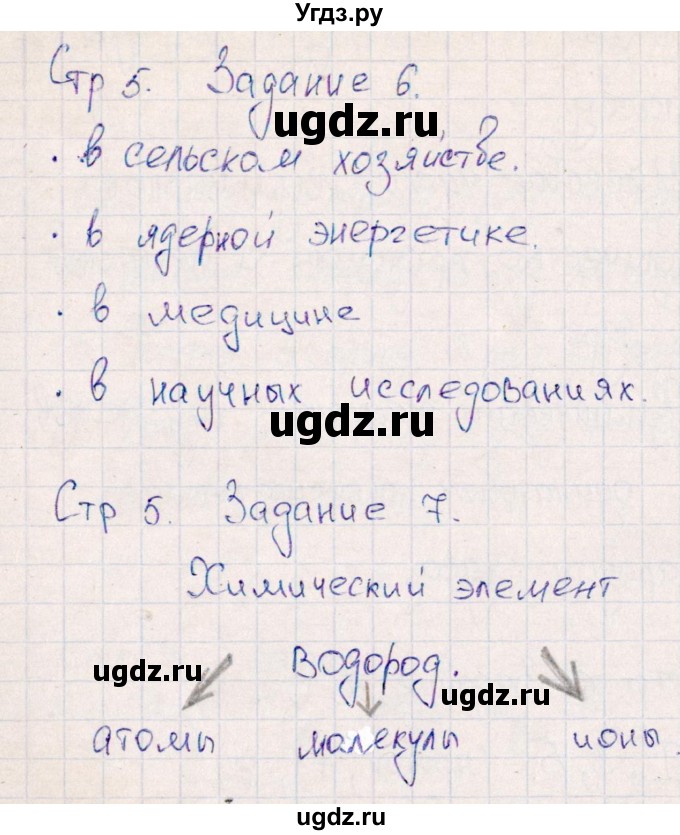 Угдз.ру
Стр 5. Задание 6.
ugdz.ru
· в сельском хозяйстве.
· в ядерной энергетике.
· в медицине
· в научных исследованиях.
ugdz.ru
Стр 5. Задание 7.
Химический элемент
водород.
ugdz.ru
ugdz.ru
атомы молекулы ионы.
ugdz.ru